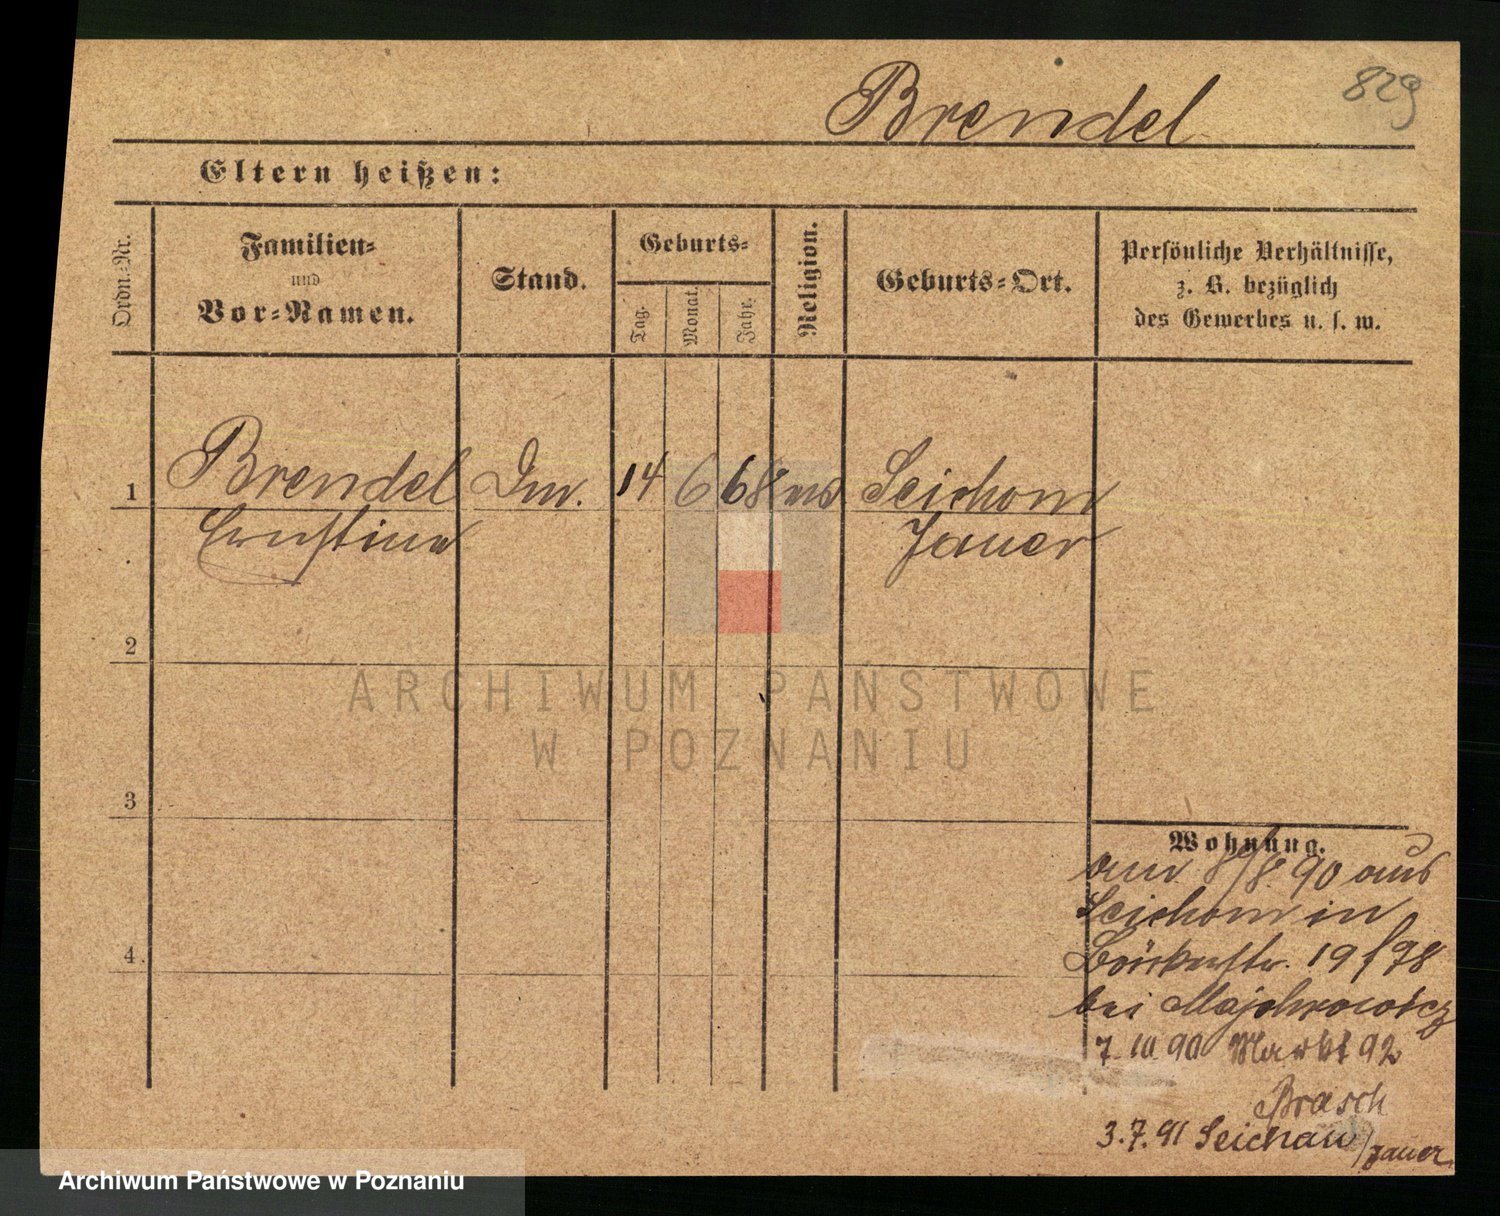 829
Brendel
Eltern heißen:
Ordn.-Nr.
Familien-
und
Vor-Namen.
Stand.
Geburts-
Tag.
Monat.
Jahr.
Religion.
Geburts-Ort.
Persönliche Verhältnisse,
z. B. bezüglich
des Gewerbes u. s. w.
1 Brendel 14 6 68 Seichom
Ernstine Jauer
2
3
4.
Wohnung.
8/8. 90 aus
Seichom in
19 / 98
bei Majchrowicz
7. 10 90 Markt 92
Brasch
3. 7. 91 Seichau / Jauer
ARCHIWUM PAŃSTWOWE
W POZNANIU
Archiwum Państwowe w Poznaniu